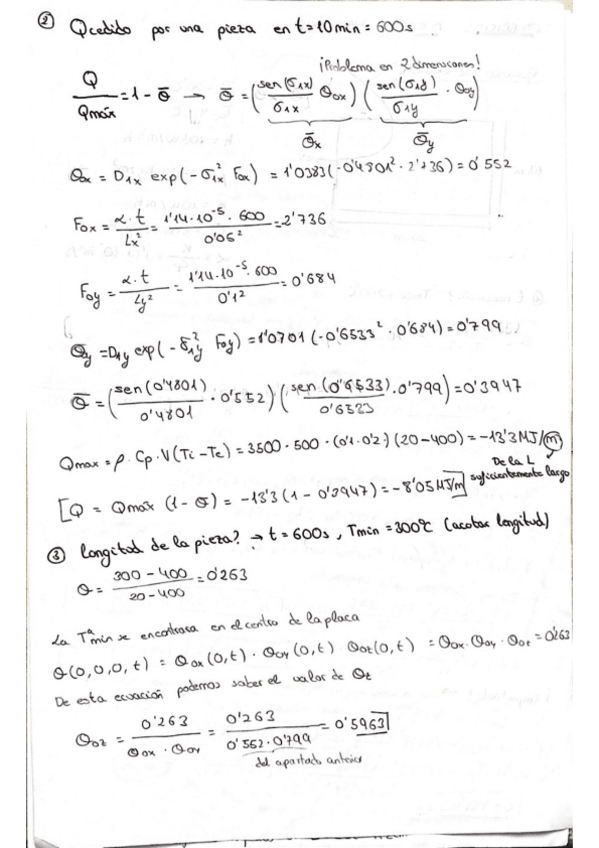 ② Qcedido por una pieza en t=10min=600s
¡Problema en 2 dimensiones!
Q/Qmáx = 1 - Θ̄ → Θ̄ = (sen(σ1x)/σ1x · Θox) (sen(σ1y)/σ1y · Θoy)
Θ̄x Θ̄y
Θox = D1x exp(-σ1x² Fox) = 1'0383(-0'4801² · 2'736) = 0'552
Fox = α·t/Lx² = 1'14·10⁻⁵ · 600/0'05² = 2'736
Foy = α·t/Ly² = 1'14·10⁻⁵ · 600/0'1² = 0'684
Θoy = D1y exp(-δ1y² Foy) = 1'0701(-0'6533² · 0'684) = 0'799
Θ̄ = (sen(0'4801)/0'4801 · 0'552) (sen(0'6533)/0'6533 · 0'799) = 0'3947
Qmax = ρ·Cp·V(Ti-Te) = 3500·500·(0'1·0'2·)(20-400) = -13'3 MJ/m
De la L suficientemente largo
[Q = Qmáx (1-Θ̄) = -13'3 (1-0'3947) = -8'05 MJ/m]
③ longitud de la pieza? → t=600s, Tmin=300ºC (acotar longitud)
Θ = 300-400/20-400 = 0'263
La Tªmin se encontrara en el centro de la placa
Θ(0,0,0,t) = Θox(0,t)·Θoy(0,t)·Θoz(0,t) = Θox·Θoy·Θoz = 0'263
De esta ecuación podemos saber el valor de Θz
Θoz = 0'263/Θox·Θoy = 0'263/0'552·0'799 = 0'5963]
del apartado anterior